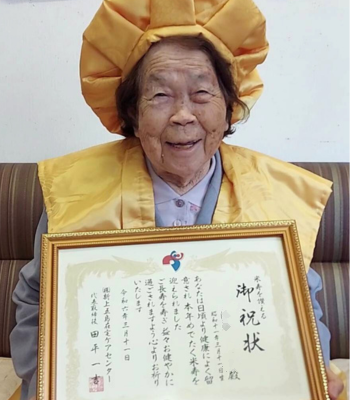 米寿を讃える
御祝状
殿
昭和十一年三月十一日生
あなたは日頃より健康によく留
意され本年めでたく米寿を
迎えられました
ご長寿を寿ぎ益々お健やかに
過ごされますよう心よりお祈り
いたします
令和六年三月十一日
㈱新上五島在宅ケアセンター
代表取締役 田平一吉